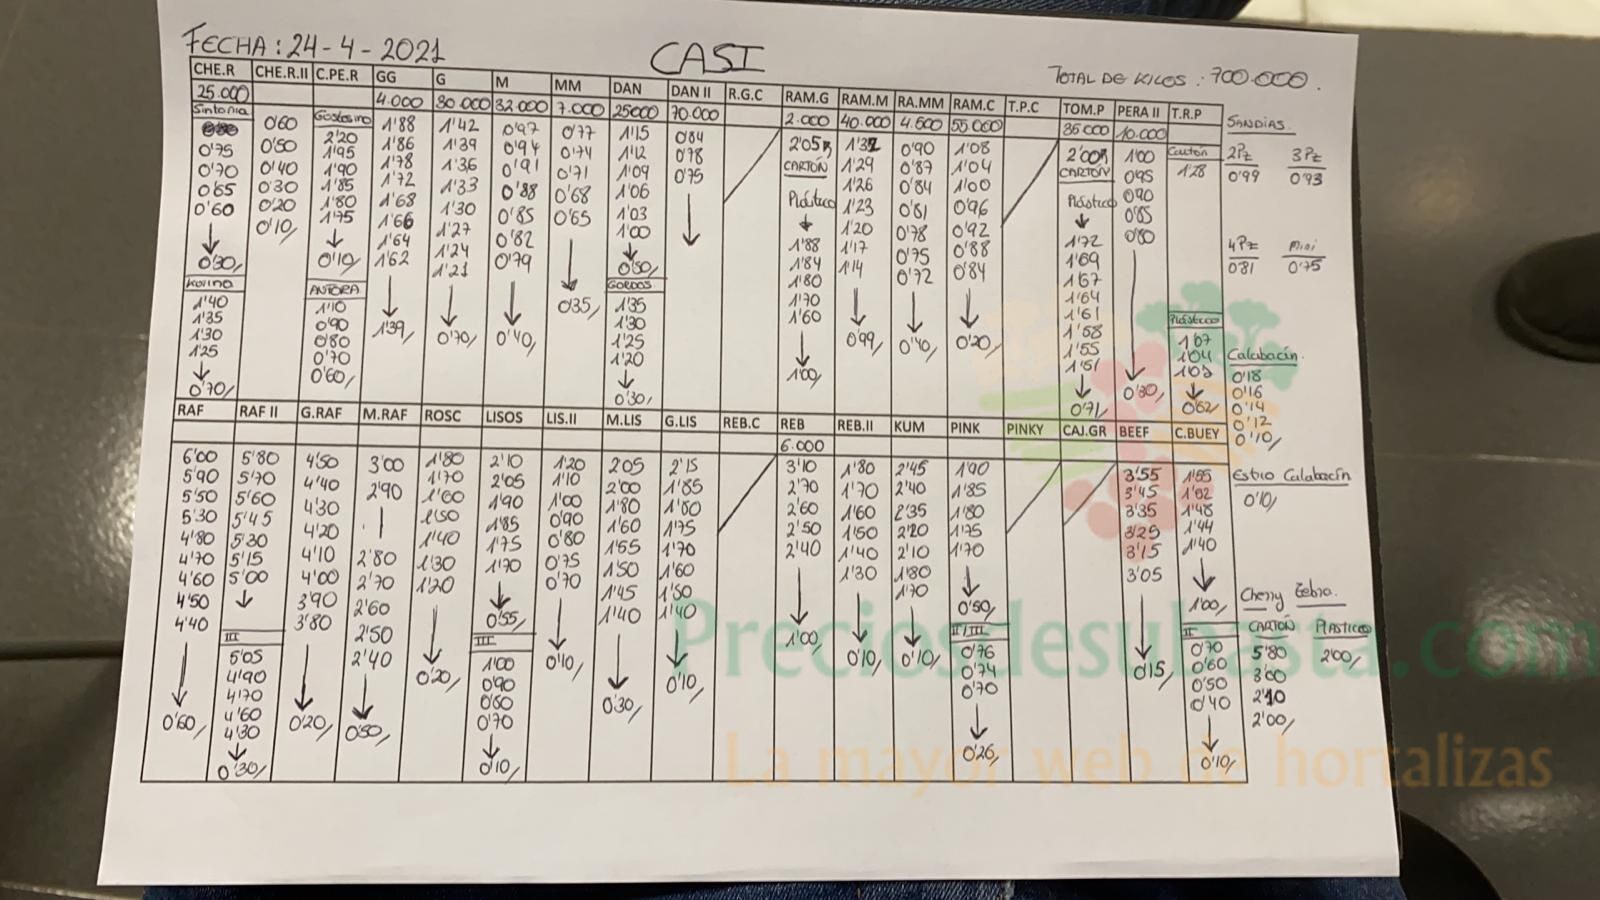 FECHA: 24-4-2021
CASI
TOTAL DE KILOS: 700.000.
CHE.R CHE.R.II C.PE.R GG G M MM DAN DAN II R.G.C RAM.G RAM.M RA.MM RAM.C T.P.C TOM.P PERA II T.R.P
25.000 4.000 80.000 32.000 7.000 25000 70.000 2.000 40.000 4.500 55.000 35.000 10.000
Sintonia
0'75
0'70
0'65
0'60
0'30
Kovino
1'40
1'35
1'30
1'25
0'70
0'60
0'50
0'40
0'30
0'20
0'10
Gostosino
2'20
1'95
1'90
1'85
1'80
1'75
0'10
ANTORA
1'10
0'90
0'80
0'70
0'60
1'88
1'86
1'78
1'72
1'68
1'66
1'64
1'62
1'39
1'42
1'39
1'36
1'33
1'30
1'27
1'24
1'21
0'70
0'97
0'94
0'91
0'88
0'85
0'82
0'79
0'40
0'77
0'74
0'71
0'68
0'65
0'35
1'15
1'12
1'09
1'06
1'03
1'00
0'50
GORDOS
1'35
1'30
1'25
1'20
0'30
0'84
0'78
0'75
2'05
CARTÓN
Plástico
1'88
1'84
1'80
1'70
1'60
1'00
1'32
1'29
1'26
1'23
1'20
1'17
1'14
0'99
0'90
0'87
0'84
0'81
0'78
0'75
0'72
0'40
1'08
1'04
1'00
0'96
0'92
0'88
0'84
0'20
2'00
CARTÓN
Plástico
1'72
1'69
1'67
1'64
1'61
1'58
1'55
1'51
0'71
1'00
0'95
0'90
0'85
0'80
0'30
Cartón
1'28
Plástico
1'07
1'04
0'62
SANDÍAS.
2Pz 3Pz
0'99 0'93
4Pz mini
0'81 0'75
Calabacín.
0'18
0'16
0'14
0'12
0'10
RAF RAF II G.RAF M.RAF ROSC LISOS LIS.II M.LIS G.LIS REB.C REB REB.II KUM PINK PINKY CAJ.GR BEEF C.BUEY
6.000
6'00
5'90
5'50
5'30
4'80
4'70
4'60
4'50
4'40
0'60
5'80
5'70
5'60
5'45
5'30
5'15
5'00
III
5'05
4'90
4'70
4'60
4'30
0'30
4'50
4'40
4'30
4'20
4'10
4'00
3'90
3'80
0'20
3'00
2'90
2'80
2'70
2'60
2'50
2'40
0'50
1'80
1'70
1'60
1'50
1'40
1'30
1'20
0'20
2'10
2'05
1'90
1'85
1'75
1'70
0'55
III
1'00
0'90
0'80
0'70
0'10
1'20
1'10
1'00
0'90
0'80
0'75
0'70
0'10
2'05
2'00
1'80
1'60
1'55
1'50
1'45
1'40
0'30
2'15
1'85
1'80
1'75
1'70
1'60
1'50
1'40
0'10
3'10
2'70
2'60
2'50
2'40
1'00
1'80
1'70
1'60
1'50
1'40
1'30
0'10
2'45
2'40
2'35
2'20
2'10
1'80
1'70
0'10
1'90
1'85
1'80
1'75
1'70
0'50
II/III
0'76
0'74
0'70
0'26
3'55
3'45
3'35
3'25
3'15
3'05
0'15
1'55
1'52
1'48
1'44
1'40
1'00
II
0'70
0'60
0'50
0'40
0'10
Estro Calabacín
0'10
Cherry Zebra.
CARTÓN PLASTICO
5'80 2'00
3'00
2'10
2'00
Preciosdesubasta.com
La mayor web de hortalizas